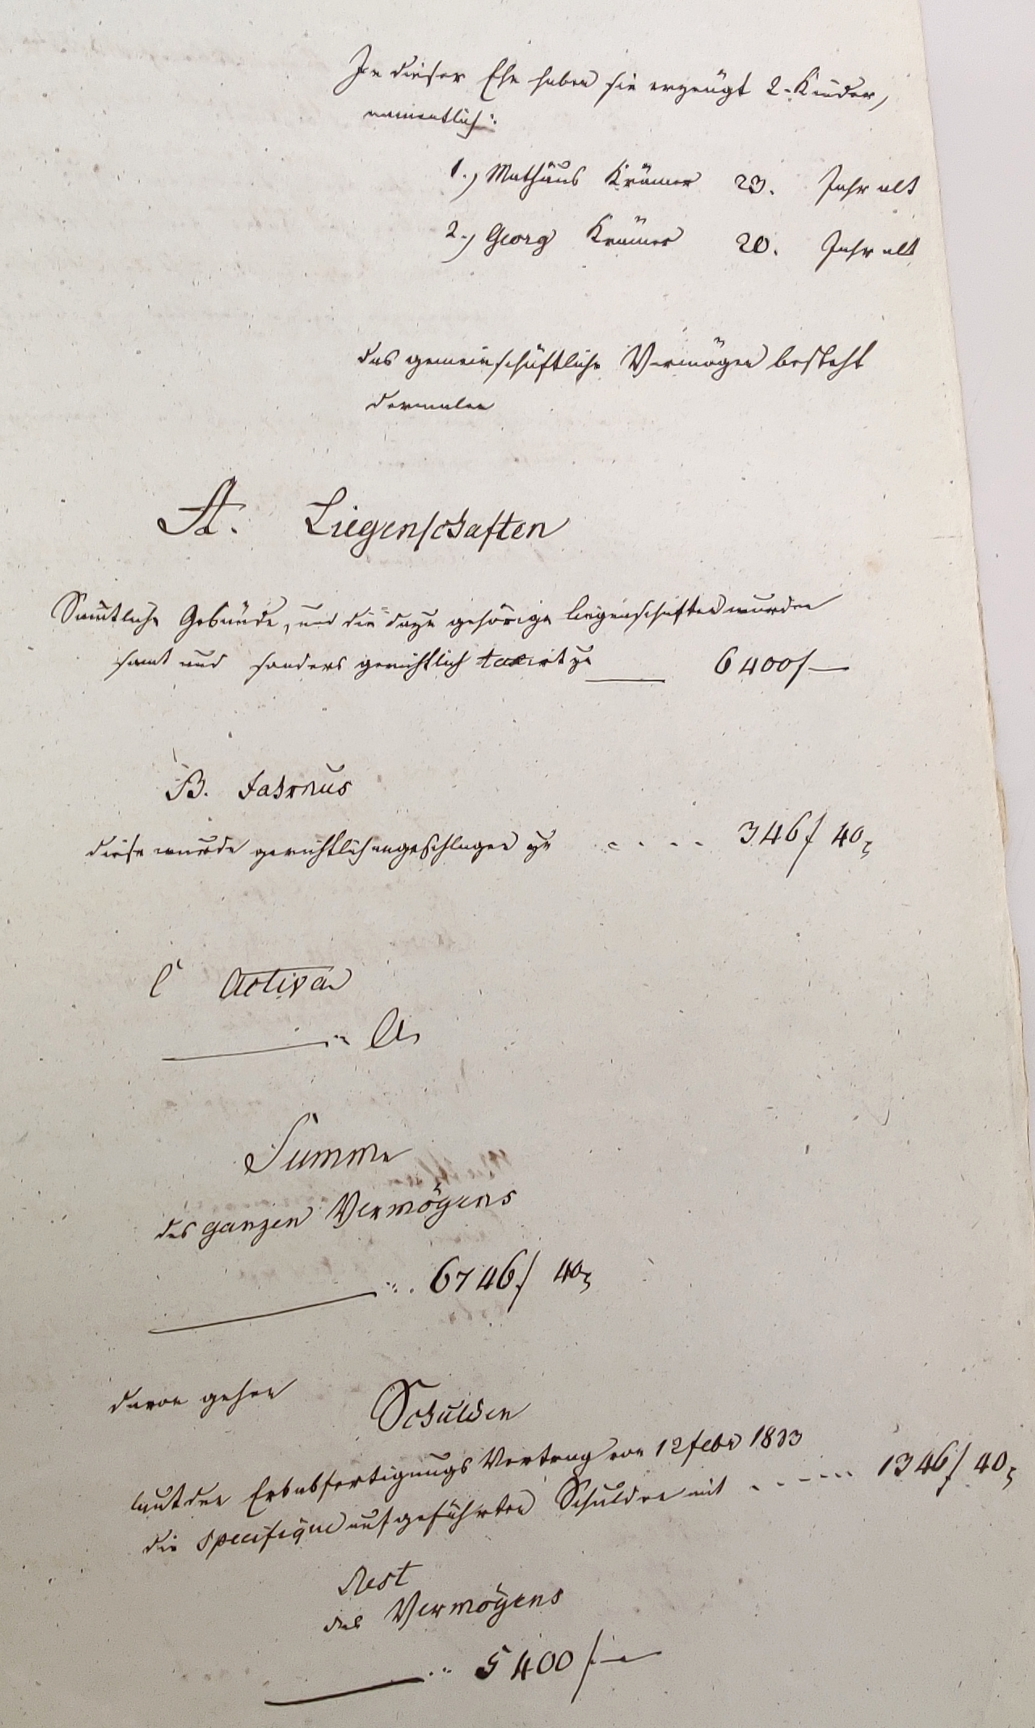 In dieser Ehe haben sie erzeugt 2. Kinder,
namentlich:
1.) Mathäus Krämer 23. Jahr alt
2.) Georg Krämer 20. Jahr alt
das gemeinschäftliche Vermögen besteht
dermalen
A. Liegenschaften
Sämtliche Gebäude, und die dazu gehörige liegenschaften wurden
samt und sonders gerichtlich taxirt zu 6400f —
B. Fahrnus
diese wurde gerichtlich angeschlagen zu . . . . 346f 40x
C Activa
Summe
des ganzen Vermögens
6746f 40x
davon gehen
Schulden
laut den Erbabfertigungs Vertrag von 12 febr 1833
die specifique aufgeführten Schulden mit . . . . 1346f 40x
Rest
des Vermögens
5400f —